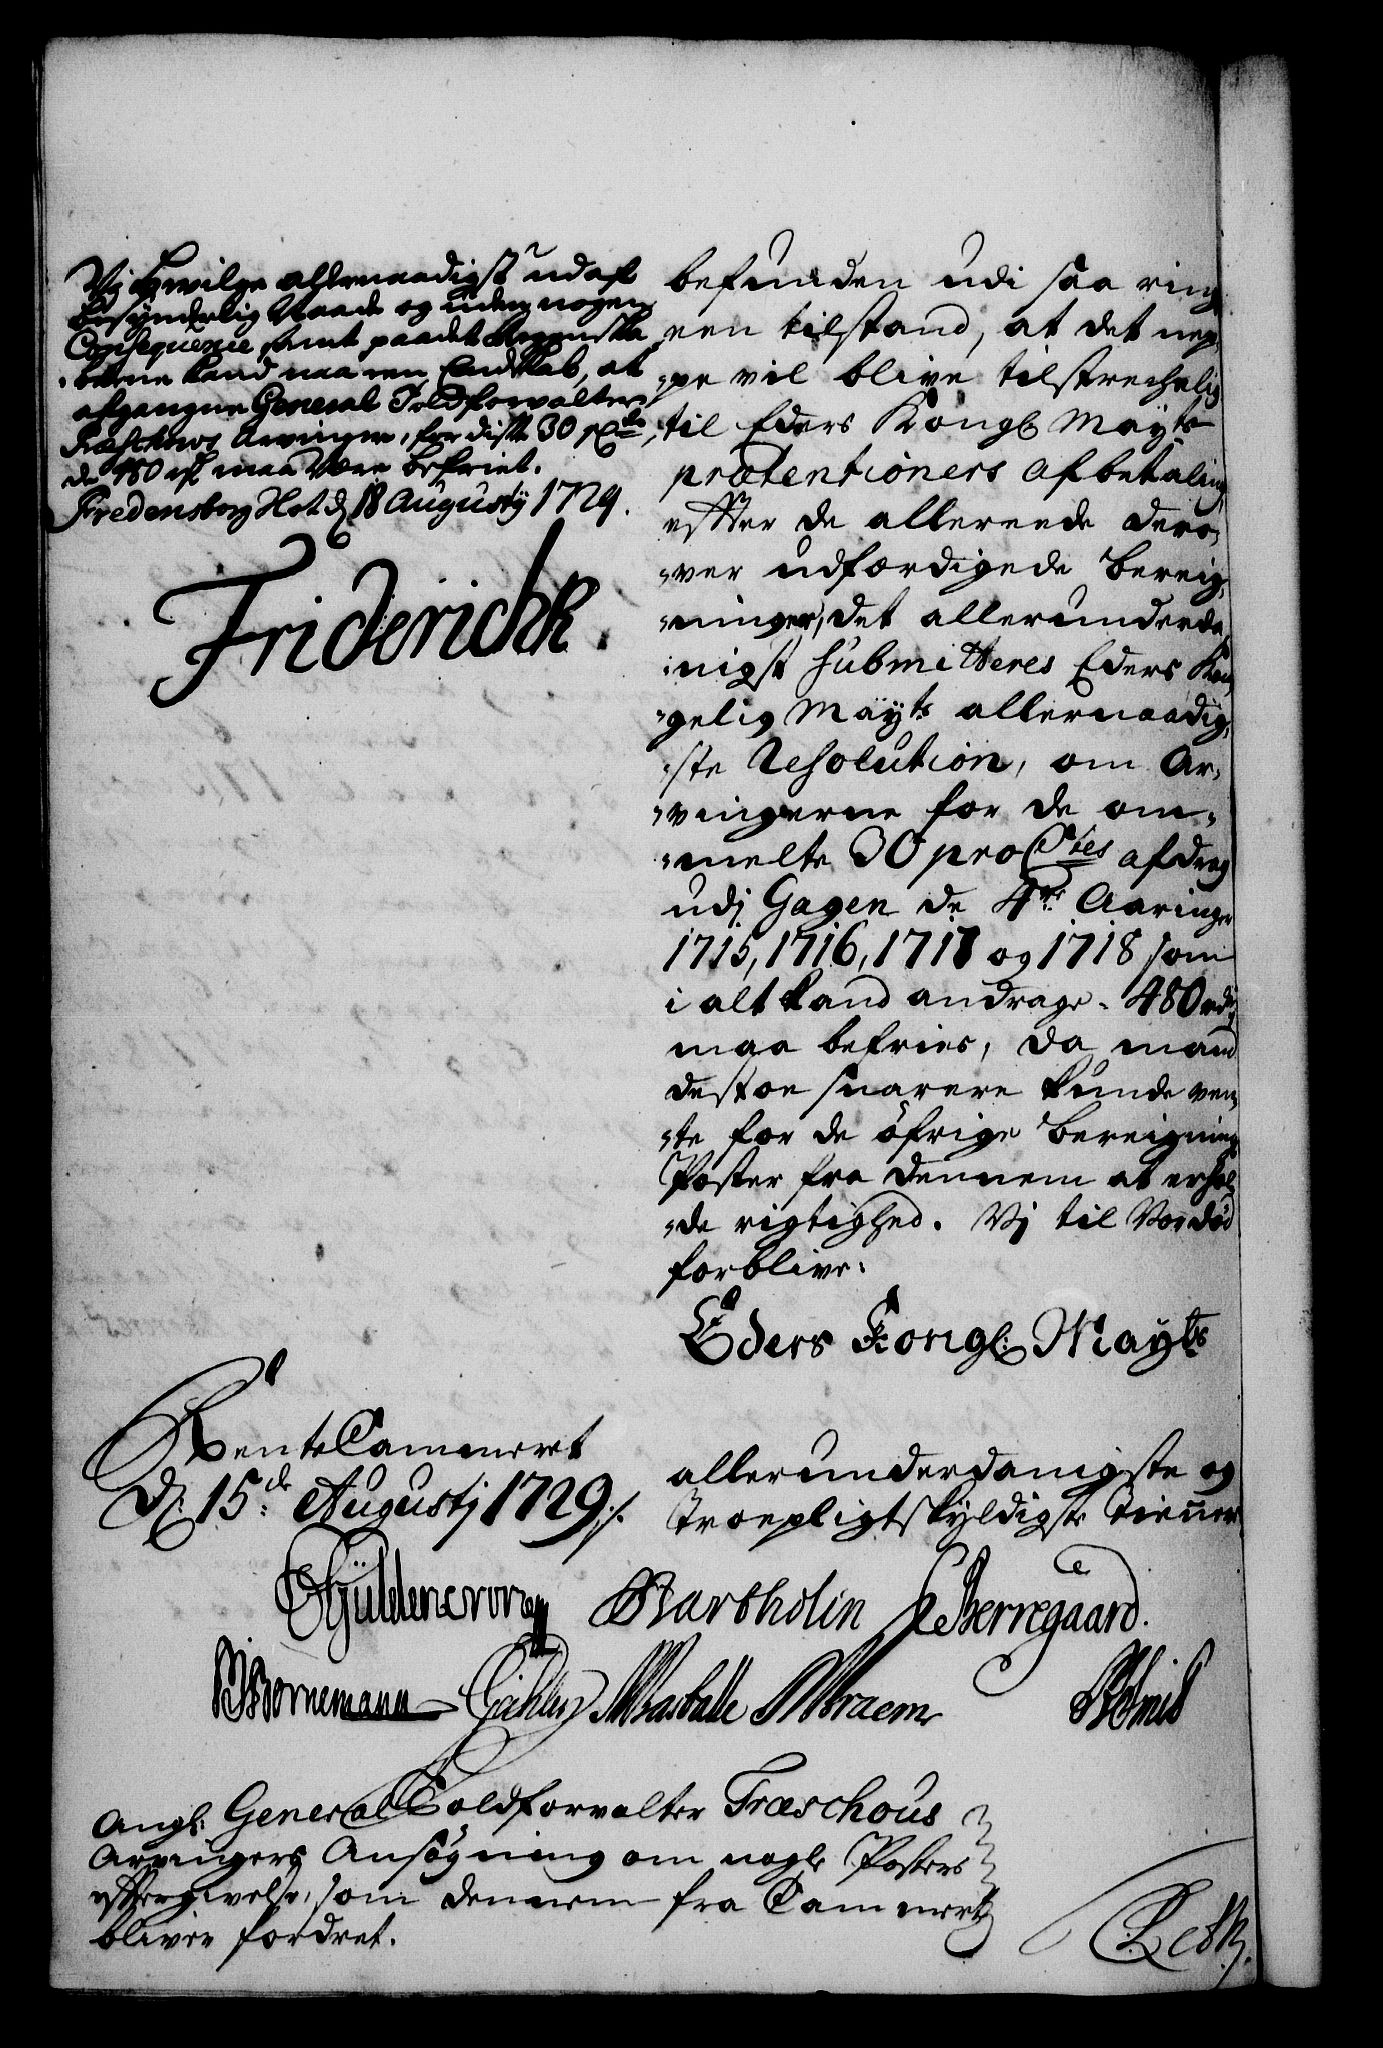 Vj bevilge allernaadigst udaf
besynderlig Naade og uden nogen
Conseqvence, samt paadet Regenska-
-berne kand naa een Endskab, at
afgangne General Toldforvalter
Træschows Arvinger, for disse 30 pCto,
de 480 rd maa være befriet.
Fredensborg Slot d 18 Augustij 1729.
Friderich R.
befunden udi saa ring-
een tilstand, at det nep-
-pe vil blive tilstrechelig
til Eders Kongl Mayts
prætentioners afbetaling
effter de allereede dero-
-ver udfærdigede bereig-
-ninger, det allerunderda-
-nigst submitteres Eders Kon-
-gelig Mayts allernaadig-
-ste Resolution, om Ar-
-vingerne for de om-
-melte 30 pro Ctes afdrag
udj Gagen de 4re Aaringer
1715, 1716, 1717 og 1718 som
i alt kand andrage 480 rdr
maa befries, da mand
destoe snarere kunde ven-
-te for de öfrige bereignings
Poster fra dennem at erhol-
-de rigtighed. Vj til Voris død
forblive:
Eders Kongl: Mayts
RenteCammeret
D: 15de Augustj 1729 ./.
allerunderdanigste og
Troepligtskyldigste Tiener
CGüldencrone Bartholin CBerregaard.
Bornemann
Angl: General Toldforvalter Træschous
Arvingers Ansögning om nogle Posters
efftergivelse, som dennem fra Cammeret
bliver fordret.